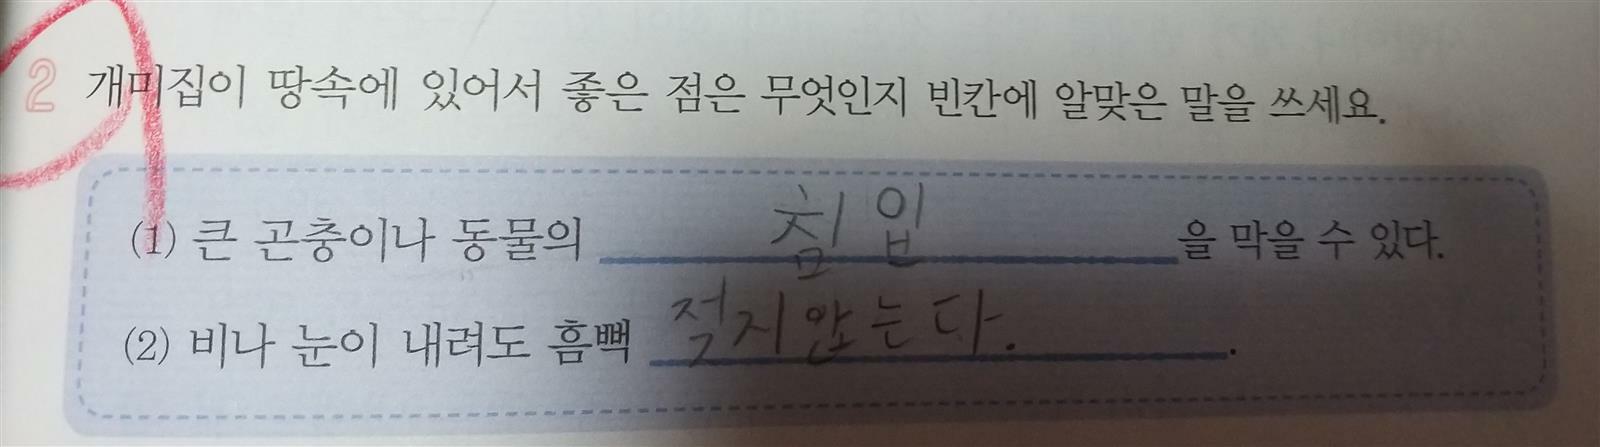 2 개미집이 땅속에 있어서 좋은 점은 무엇인지 빈칸에 알맞은 말을 쓰세요.
(1) 큰 곤충이나 동물의 침입을 막을 수 있다.
(2) 비나 눈이 내려도 흠뻑 젖지않는다..